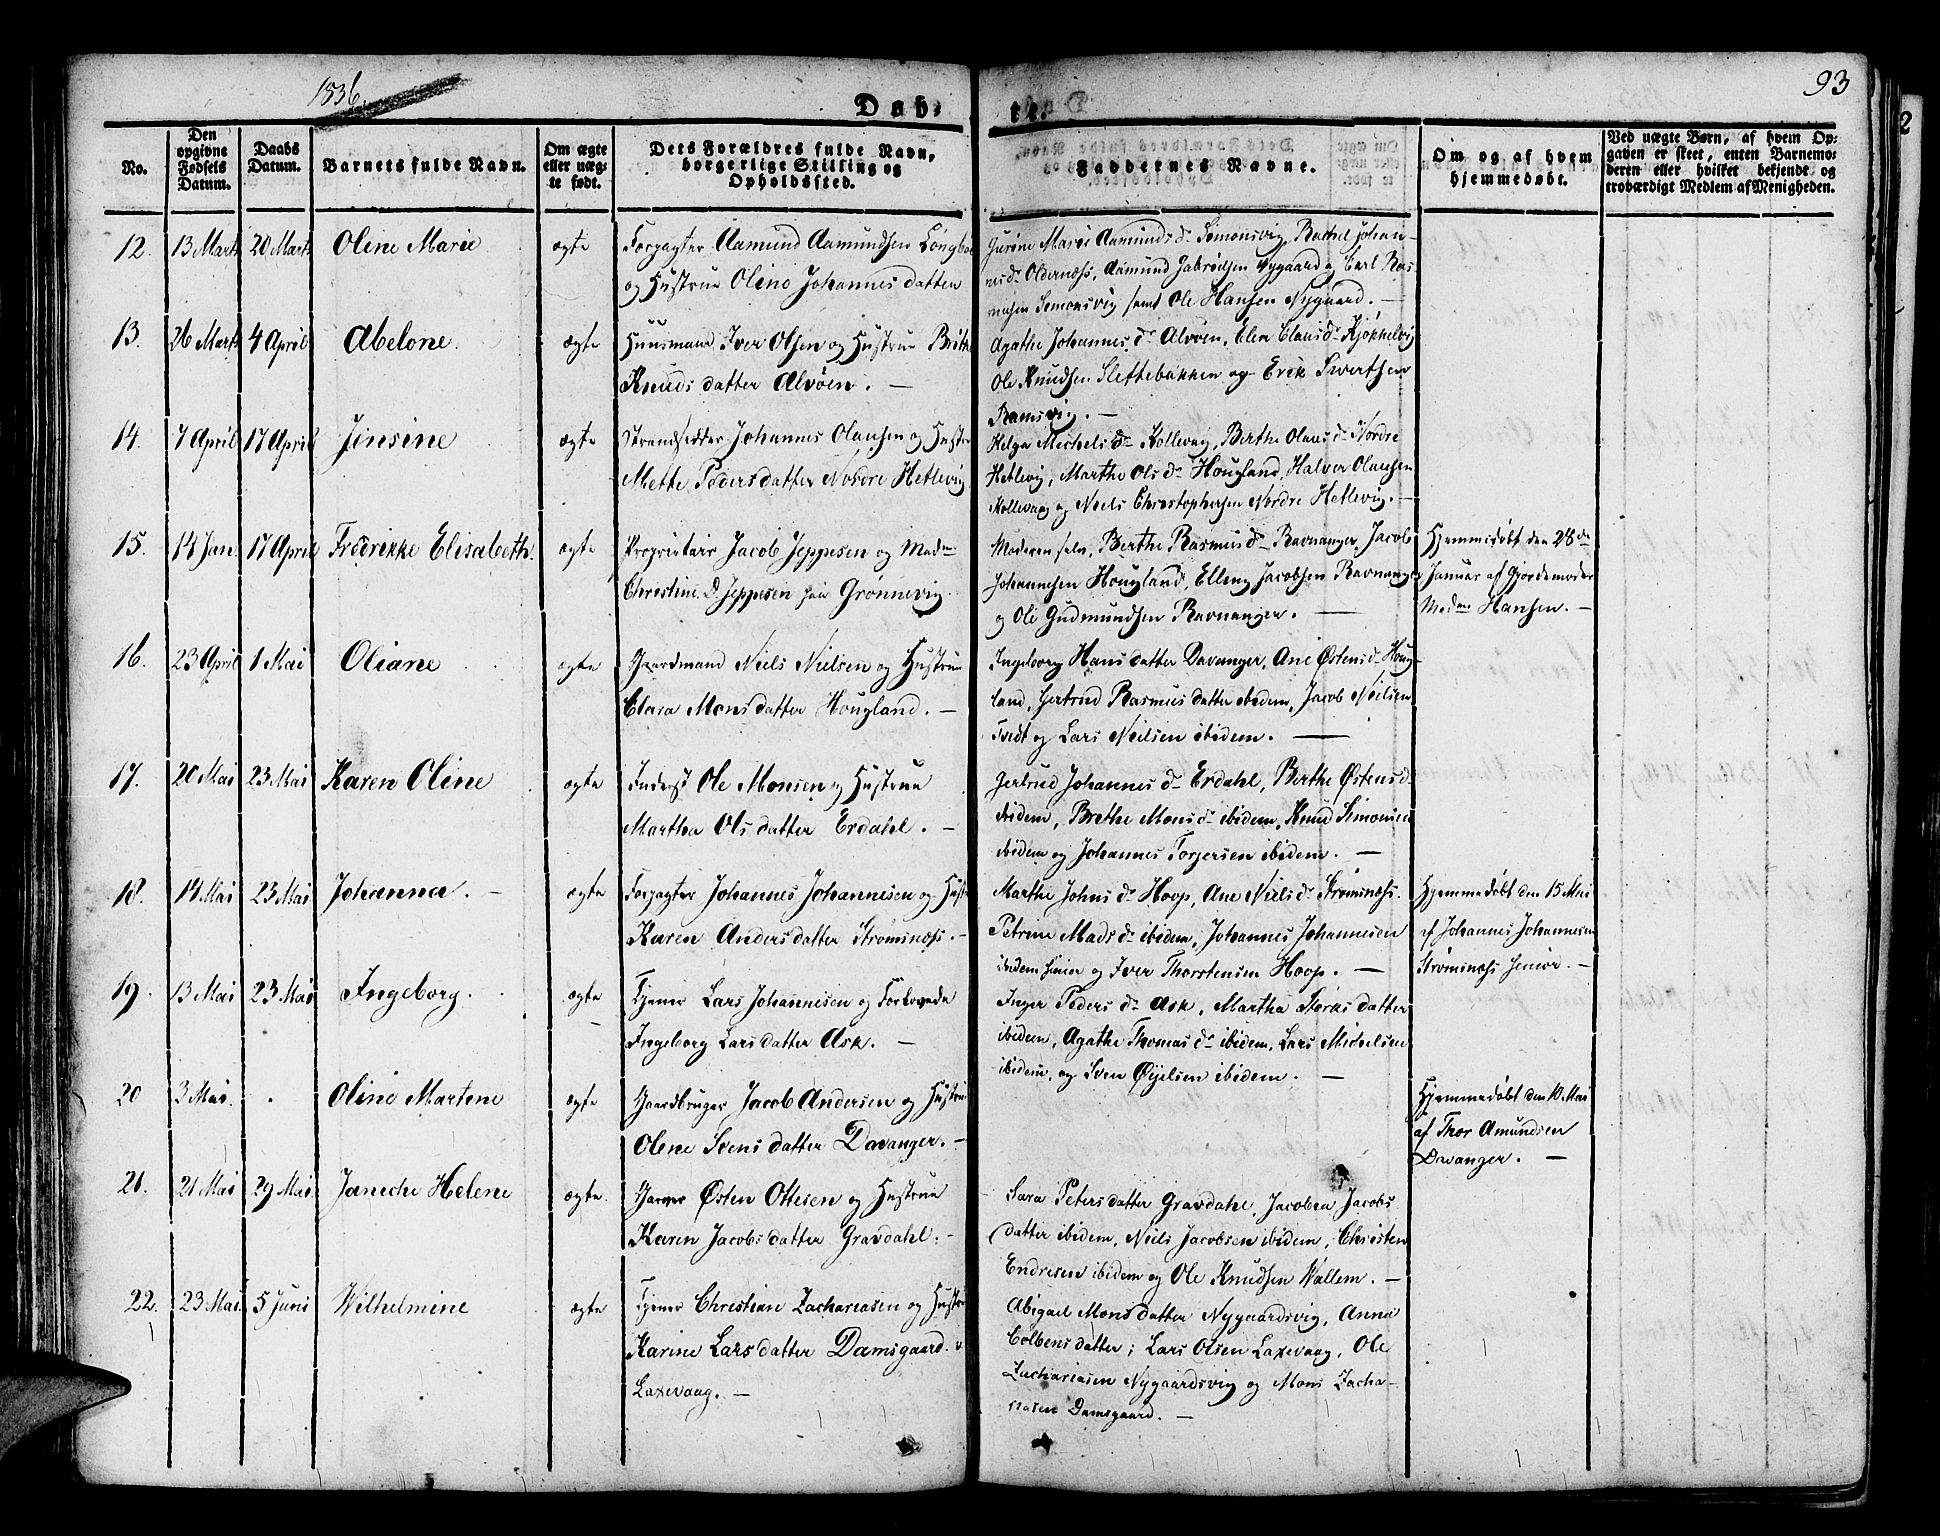 1836.
93
Døb- te.
No.
Den opgivne Fødsels Datum.
Daabs Datum.
Barnets fulde Navn.
Om ægte eller uæg- te født.
Dets Forældres fulde Navn, borgerlige Stilling og Opholdssted.
Faddernes Navne.
Om og af hvem hjemmedøbt.
Ved uægte Børn, af hvem Op- gaven er skeet, enten Barnemo- deren eller hvilket bekjendt og troværdigt Medlem af Menigheden.
12. 13 Marts 20 Marts Olene Marie ægte
Forpagter Aamund Aamundsen
og Hustrue Oline Johannesdatter
Gurine Marie Aamunds d. Simonsvig, Rachel Johan-
nes d. Oldernæss, Aamund Nygaard og Carl Ras-
musen Simonsvig samt Ole Hansen Nygaard. —
13. 26 Marts 4 April Abelone. ægte
Huusmand Iver Olsen og Hustrue Brithe
Knudsdatter Alvøen. —
Agathe Johannes d. Alvøen, Elen Claus d. Kjøkkelvig
Ole Knudsen Slettebakken og Erik Sivertsen
Ramsvig. —
14. 7 April 17 April Jensine ægte
Strandsidder Johannes Olausen og Hustr
Mette Pedersdatter Nordre Hetlevig
Helga Michels d. Kollevaag, Berthe Olaus d. Nordre
Hetlevig, Marthe Ols d. Hougland, Halver Olausen
Kollevaag og Niels Christophersen Nordre Hetlevig. —
15. 14 Jan. 17 April Fredrikke Elisabeth. ægte
Proprietair Jacob Jeppesen og Mad.
Christine D. Jeppesen paa Grønnevig.
Moderen selv, Berthe Rasmus d. Ravnanger, Jacob
Johannesen Hougland, Elling Jacobsen Ravnanger
og Ole Gudmundsen Ravnanger. —
Hjemmedøbt den 28de
Januar af Gjordemoder
Mad. Hansen. —
16. 23 April 1 Mai Oliane ægte
Gaardmand Niels Nielsen og Hustrue
Clara Monsdatter Hougland. —
Ingeborg Hansdatter Davanger, Ane Østens d. Houg-
land, Gertrud Rasmusdatter ibidem, Jacob Nielsen
Tvedt og Lars Nielsen ibidem. —
17. 20 Mai 23 Mai Karen Oline ægte
Inderst Ole Monsen og Hustrue
Martha Olsdatter Erdahl. —
Gertrud Johannes d. Erdahl, Berthe Østens d.
ibidem, Brethe Mons d. ibidem, Knud Simonsen
ibidem og Johannes Torgersen ibidem. —
18. 14 Mai 23 Mai Johanna. — ægte
Forpagter Johannes Johannesen og Hustr
Karen Andersdatter Strømsnæss. —
Marthe Johns d. Hoop, Ane Niels d. Strømsnæss.
Petrine Mads d. ibidem, Johannes Johannesen
ibidem senior og Iver Thorstensen Hoop. —
Hjemmedøbt den 15 Mai
af Johannes Johannesen
Strømsnæss senior. —
19. 13 Mai 23 Mai Ingeborg. ægte
Tjener Lars Johannesen og Forlovede
Ingeborg Larsdatter Ask. —
Inger Peders d. Ask, Martha datter
ibidem, Agathe Thomas d. ibidem, Lars Michelsen
ibidem, og Sven ibidem. —
20 3 Mai. Oline Martine ægte
Gaardbruger Jacob Andersen og Hustrue
Olene Svensdatter Davanger. —
Hjemmedøbt den 10 Mai
af Thor Amundsen
Davanger. —
21. 21 Mai 29 Mai Janiche Helene ægte.
Garver Østen Ottesen og Hustrue
Karen Jacobsdatter Gravdahl. —
Sara Petersdatter Gravdahl, Jacobea Jacobs
datter ibidem, Niels Jacobsen ibidem, Christen
Endresen ibidem og Ole Knudsen Wallem. —
22. 23 Mai 5 Juni Wilhelmine ægte
Tjener Christian Zachariasen og Hustru
Karine Larsdatter Damsgaard.
Laxevaag. —
Abigael Monsdatter Nygaardsvig, Anna
Colbensdatter; Lars Olsen Laxevaag, Ole
Zachariasen Nygaardsvig og Mons Zacha-
riasen Damsgaard. —